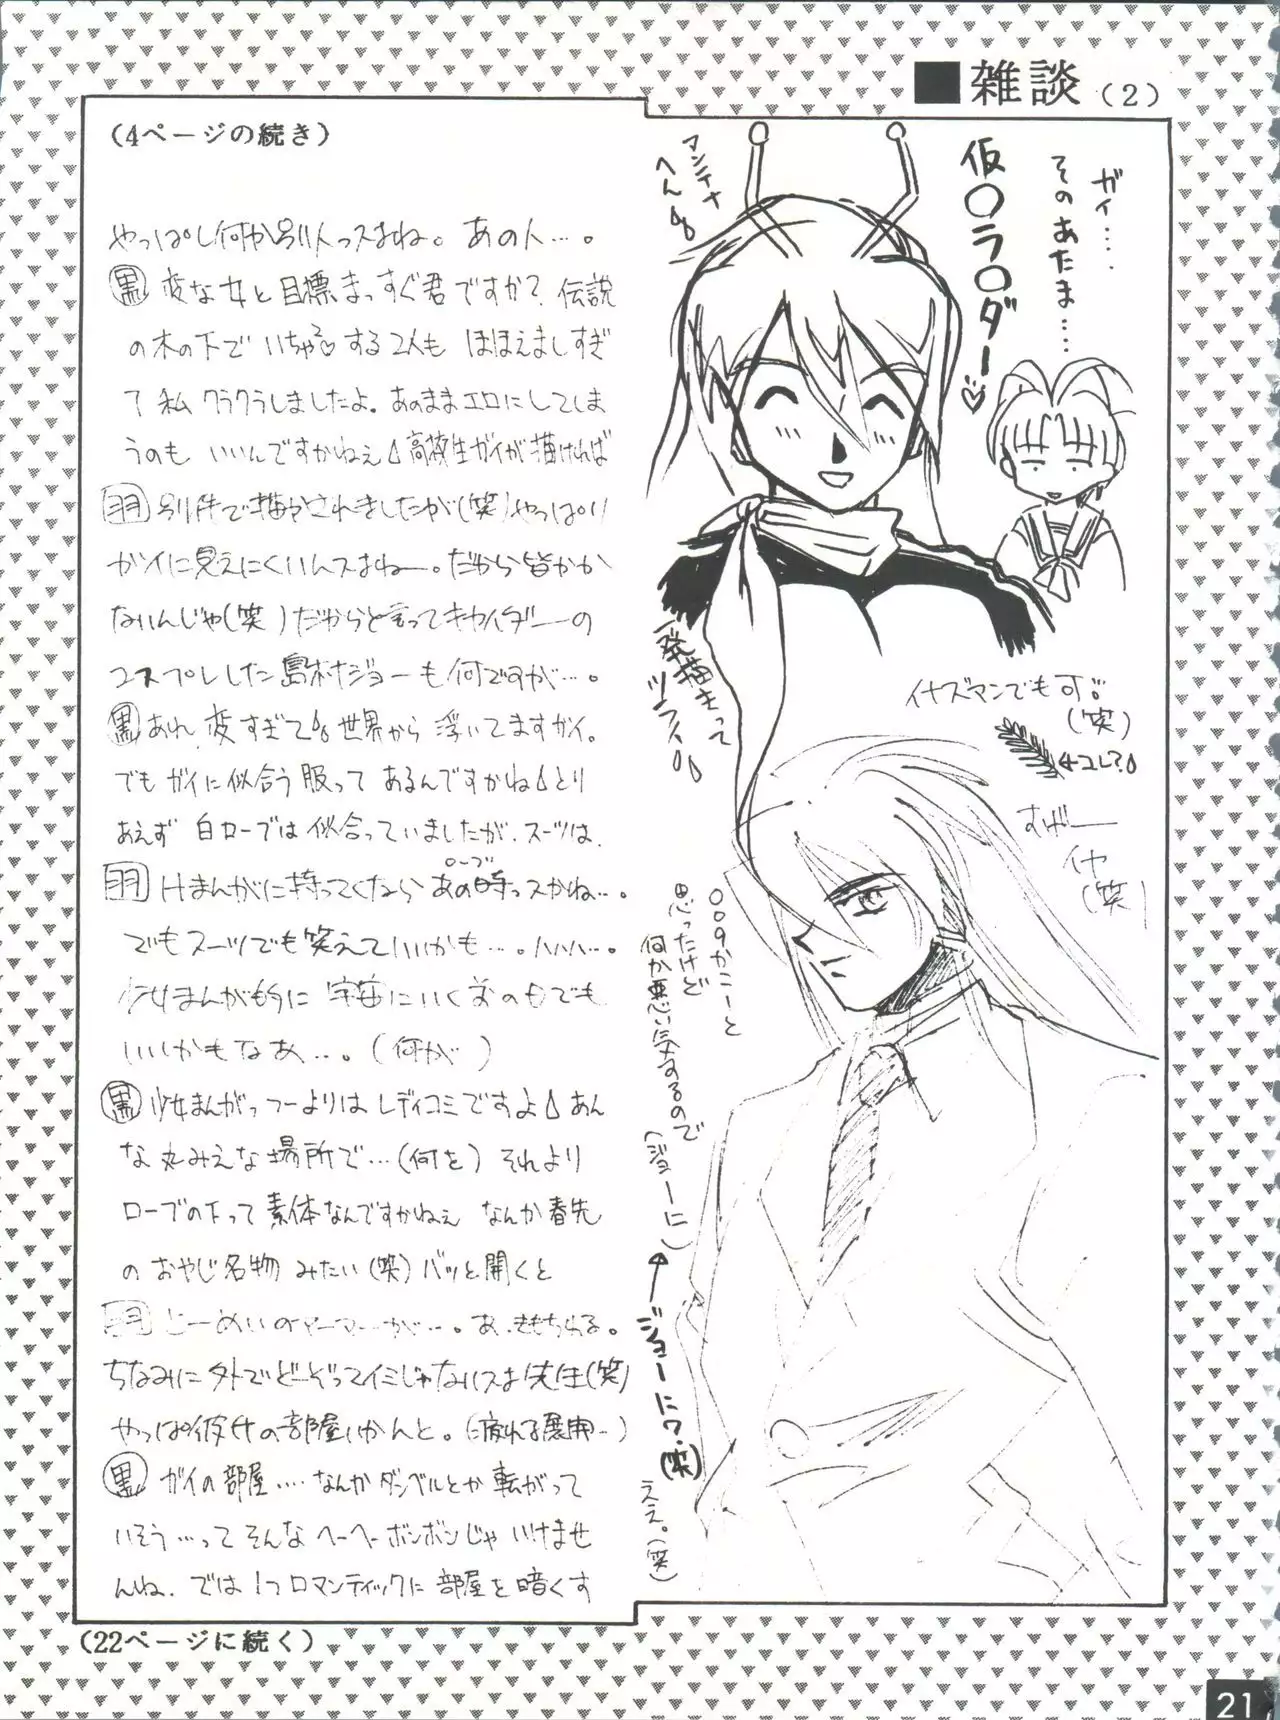 ■雑談（2）
（4ページの続き）
やっぱし何か別人っスよね。あの人…。
黒 変な女と目標まっすぐ君ですか？伝説
の木の下でいちゃ2♡する2人もほほえましすぎ
て私クラクラしましたよ。あのままエロにしてしま
うのもいいんですかねぇ 高校生ガイが描ければ
羽 別件で描かされましたが（笑）やっぱり
ガイに見えにくいんスよねー。だから皆かか
ないんじゃ（笑）だからと言ってキカイダーの
コスプレした島村ジョーも何ですが…。
黒 あれ、変すぎて 世界から浮いてますガイ。
でもガイに似合う服ってあるんですかね とり
あえず白ローブは似合っていましたが、スーツは、
羽 Hまんがに持ってくならあの時っスかね…。
ローブ
でもスーツでも笑えていいかも…。ハハハ…。
少女まんが的に宇宙にいく前のでも
いいかもなあ…。（何が）
黒 少女まんがっつーよりはレディコミですよ あん
な丸みえな場所で…（何を）それより
ローブの下って素体なんですかねぇ なんか春先
のおやじ名物みたい（笑）バッと開くと
羽 とーめいのアーマーが…。あ、きもちわる。
ちなみに外でどーぞってイミじゃないスよ先生（笑）
やっぱ彼女の部屋いかんと。（疲れる展開-）
黒 ガイの部屋….なんかダンベルとか転がって
いそう…ってそんなヘーヘーボンボンじゃいけませ
んね。では1つロマンティックに部屋を暗くす
（22ページに続く）
アンテナ
へん
仮○ラ○ダー♡
ガイ….
そのあたま……
一発描きって
ツライ
イナズマンでも可
（笑）
←コレ？
すげー
イヤ
（笑）
009かニーと
思ったけど
何か悪い気するので
（ジョーに）
←ジョーに？（笑）
ええ。（笑）
21